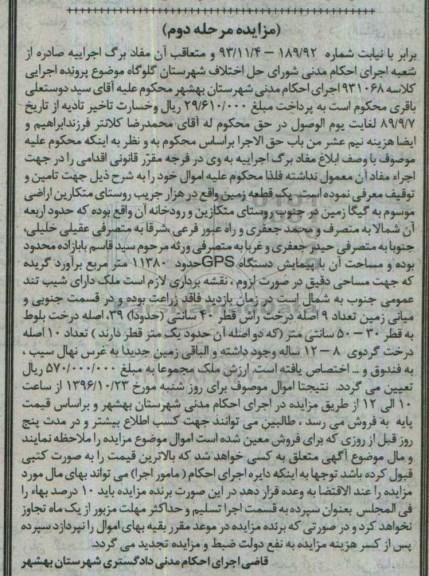 (مزایده مرحله دوم)
برابر با نیابت شماره ۱۸۹/۹۲ – ۹۳/۱۱/۴ و متعاقب آن مفاد برگ اجراییه صادره از
شعبه اجرای احکام مدنی شورای حل اختلاف شهرستان گلوگاه موضوع پرونده اجرایی
کلاسه ۹۳۱۰۶۸ اجرای احکام مدنی شهرستان بهشهر محکوم علیه آقای سید دوستعلی
باقری محکوم است به پرداخت مبلغ ۲۹/۶۱۰/۰۰۰ ریال وخسارت تاخیر تادیه از تاریخ
۸۹/۹/۷ لغایت یوم الوصول در حق محکوم له آقای محمدرضا کلانتر فرزندابراهیم و
ایضا هزینه نیم عشر من باب حق الاجرا براساس محکوم به و نظر به اینکه محکوم علیه
موصوف با وصف ابلاغ مفاد برگ اجراییه به وی در فرجه مقرر قانونی اقدامی را در جهت
اجراء مفاد آن معمول نداشته فلذا محکوم علیه اموال خود را به شرح ذیل جهت تامین و
توقیف معرفی نموده است. یک قطعه زمین واقع در هزار جریب روستای متکازین اراضی
موسوم به گیگا زمین در جنوب روستای متکازین و رودخانه آن واقع بوده که حدود اربعه
آن شمالا به متصرف و محمد جعفری و راه عبور فرعی ،شرقا به متصرفی عقیلی خلیلی،
جنوبا به متصرفی حیدر جعفری و غربا به متصرفی ورثه مرحوم سید قاسم بابازاده محدود
بوده و مساحت آن با پیمایش دستگاه GPS حدود ۱۱۳۸۰ متر مربع برآورد گریده
که جهت مساحی دقیق در صورت لزوم ، نقشه برداری لازم است ملک دارای شیب تند
عمومی جنوب به شمال است در زمان بازدید فاقد زراعت بوده و در قسمت جنوبی و
میانی زمین تعداد ۹ اصله درخت راش قطر ۴۰ سانتی (حدودا) ۳۹، اصله درخت بلوط
به قطر ۳۰ – ۵۰ سانتی متر (که دو اصله آن حدود یک متر قطر دارند ) تعداد ۱۰ اصله
درخت گردوی ۸ – ۱۲ ساله وجود داشته و الباقی زمین جدیدا به غرس نهال سیب ،
به فندوق و ... اختصاص یافته است. ارزش ملک مجموعا به مبلغ ۵۷۰/۰۰۰/۰۰۰ ریال
تعیین می گردد. نتیجتا اموال موصوف برای روز شنبه مورخ ۱۳۹۶/۱۰/۲۳ از ساعت
۱۰ الی ۱۲ از طریق مزایده در اجرای احکام مدنی شهرستان بهشهر و براساس قیمت
پایه به فروش می رسد ، طالبین می توانند جهت کسب اطلاع بیشتر و در مدت پنج
روز قبل از روزی که برای فروش معین شده است اموال موضوع مزایده را ملاحظه نمایند
و مال موضوع آگهی متعلق به کسی خواهد شد که بالاترین قیمت را به صورت کتبی
قبول کرده باشد توجها به اینکه دایره اجرای احکام ( مامور اجرا) می تواند بهای مال مورد
مزایده را عند الاقتضا به وعده قرار دهد در این صورت برنده مزایده باید ۱۰ درصد بهاء را
فی المجلس بعنوان سپرده به قسمت اجرا تسلیم و حداکثر مهلت مزبور از یک ماه تجاوز
نخواهد کرد و در صورتی که برنده مزایده در موعد مقرر بقیه بهای اموال را نپردازد سپرده
پس از کسر هزینه مزایده به نفع دولت ضبط و مزایده تجدید می گردد.
قاضی اجرای احکام مدنی دادگستری شهرستان بهشهر